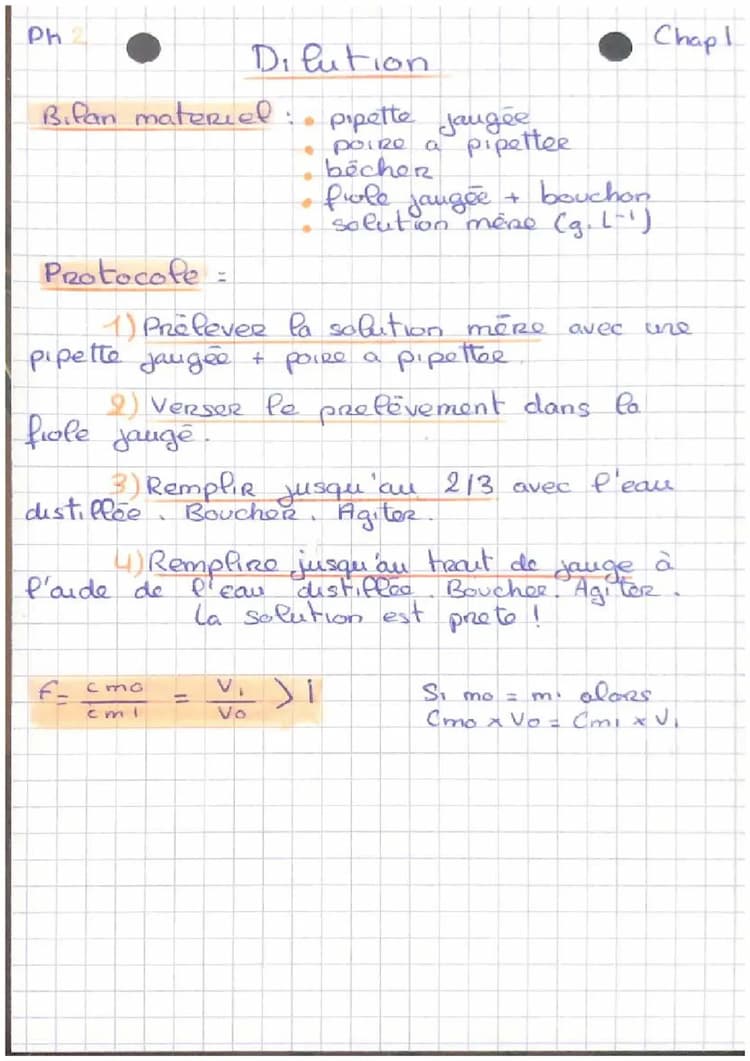 Ph 2
Chap 1
Dilution
Bilan materiel : • pipette jaugée
• poire a pipetter
• bécher
• fiole jaugée + bouchon
• solution mère (g.L-1)
Protocole :
1) Prélever la solution mère avec une
pipette jaugée + poire a pipetter.
2) Verser le prélèvement dans la
fiole jaugé.
3) Remplir jusqu'au 2/3 avec l'eau
distillée. Boucher. Agiter.
4) Remplire jusqu'au trait de jauge à
l'aide de l'eau distillée. Boucher. Agiter.
la solution est prete !
F = cm0/cm1 = V1/V0 > 1
Si m0 = m1 alors
Cm0 x V0 = Cm1 x V1